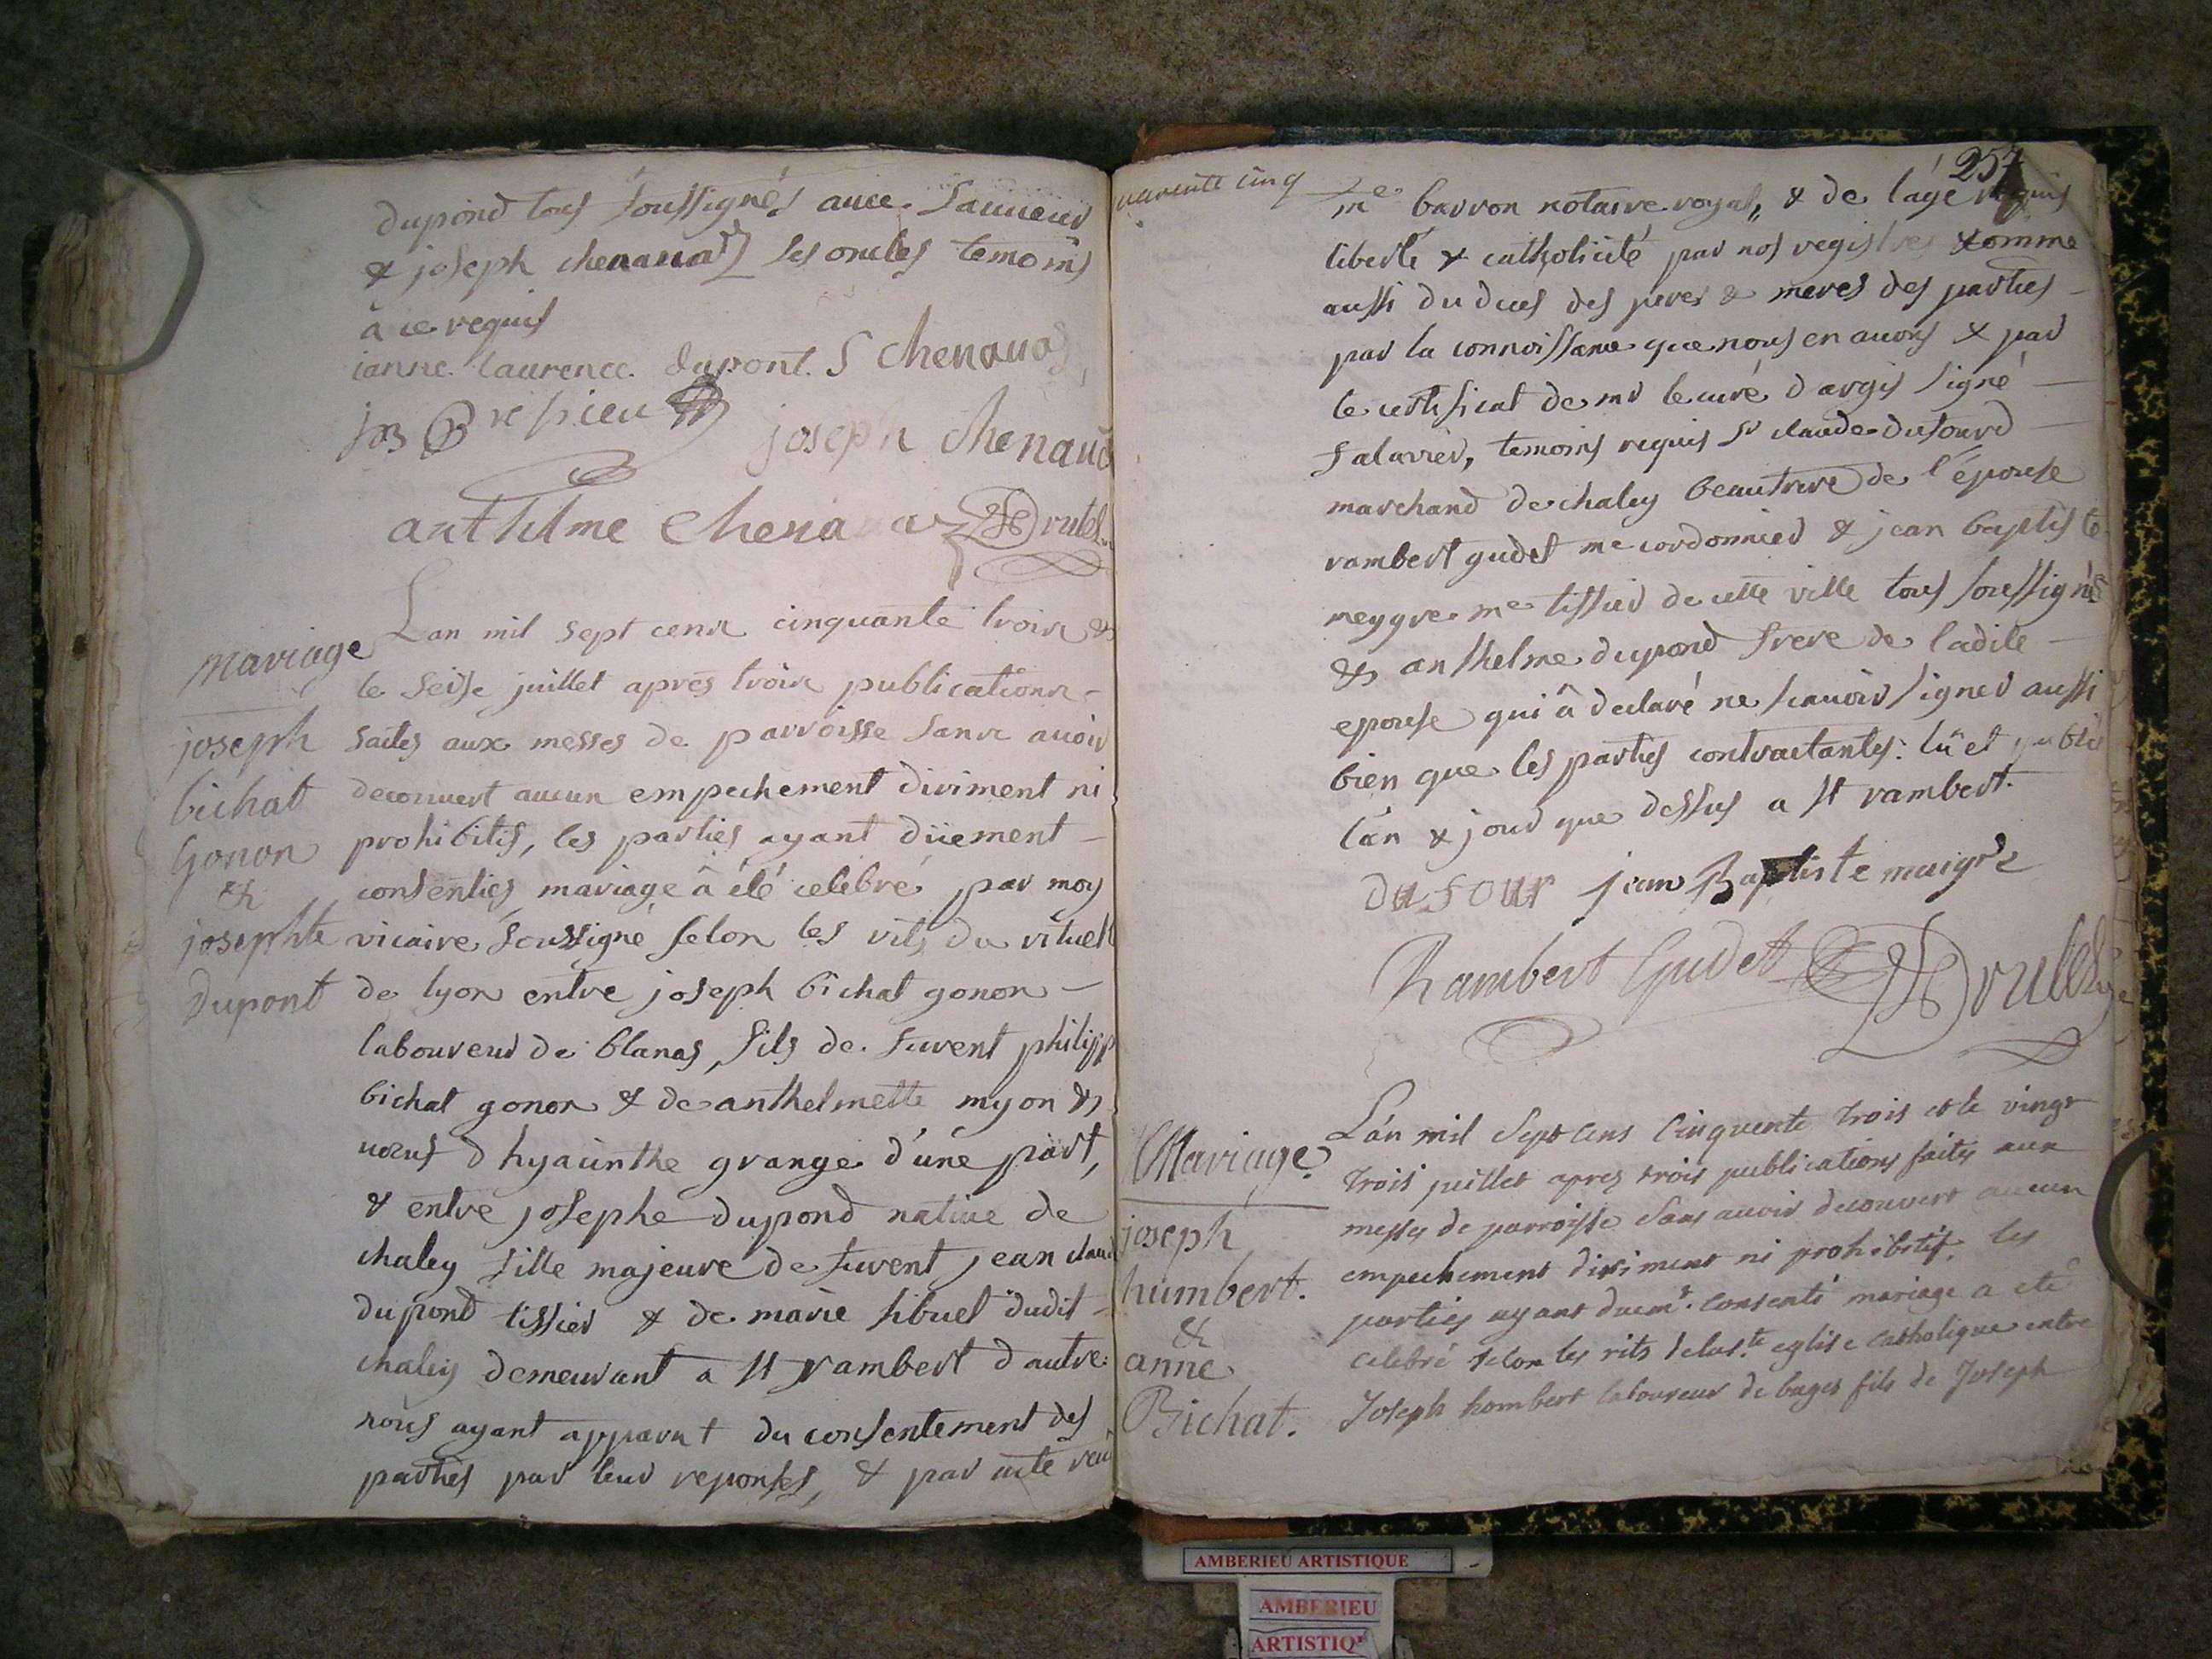 dupond tous soussignés avec Sauveur
& joseph chenavaz ses oncles temoins
à ce requis
janne laurence dupont S chenavas
jos Brepieu
joseph chenava
anthelme chenavaz Drutel
Mariage
joseph
bichat
Gonon
&
josephte
Dupont
L'an mil sept cens cinquante trois &
le seise juillet après trois publications
faites aux messes de parroisse sans avoir
decouvert aucun empechement diriment ni
prohibitif, les parties ayant düement
consenties mariage â été celebré par moy
vicaire soussigné selon les rits du rituel
de lyon entre joseph bichat gonon
laboureur de blanas, fils de fuent philipp
bichat gonon & de anthelmette myon &
voeuf d'hyacinthe grange d'une part,
& entre josephe dupond native de
chaley fille majeure de fuent jean claud
dupond tissier & de marie tibuel dudit
chaley demeurant a St rambert d'autre
nous ayant apparut du consentement des
parties par leur reponses, & par acte reçu
257
quarente cinq
me barron notaire royal, & de l'age requis
liberté & catholicité par nos registres comme
aussi du deces des peres & meres des parties
par la connoissance que nous en avons & par
le certificat de mr le curé d'argis signé
Salavier, temoins requis Sr claude dufourd
marchand de chaley beaufrere de l'épouse
rambert gudet me cordonnier & jean baptiste
meygre me tissier de cette ville tous soussignés
& anthelme dupond frere de ladite
epouse qui â declaré ne scavoir signer aussi
bien que les parties contractantes: lû et publié
l'an & jour que dessus a St rambert.
dufour jean Baptiste maigre
Rambert Gudet Drutel
Mariage
joseph
humbert.
&
anne
Bichat.
L'an mil sept cens cinquente trois et le vingt
trois juillet apres trois publications faites aux
messes de parroisse sans avoir decouvert aucun
empechement diriment ni prohibitif. les
parties ayant duemt. consenti mariage a eté
celebré selon les rits de la ste eglise catholique entre
Joseph hombert laboureur de buges fils de Joseph
AMBERIEU ARTISTIQUE
AMBERIEU
ARTISTIQ